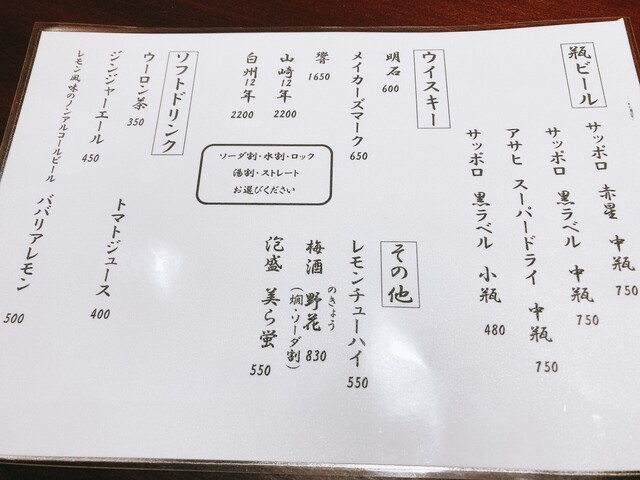 瓶ビール
サッポロ 赤星 中瓶 750
サッポロ 黒ラベル 中瓶 750
アサヒ スーパードライ 中瓶 750
サッポロ 黒ラベル 小瓶 480
ウイスキー
明石 600
メイカーズマーク 650
響 1650
山崎12年 2200
白州12年 2200
ソーダ割・水割・ロック
湯割・ストレート
お選びください
その他
レモンチューハイ 550
梅酒 野花 830
のきょう
(燗・ソーダ割)
泡盛 美ら蛍 550
ソフトドリンク
ウーロン茶 350
ジンジャーエール 450
トマトジュース 400
レモン風味のノンアルコールビール ババリアレモン 500